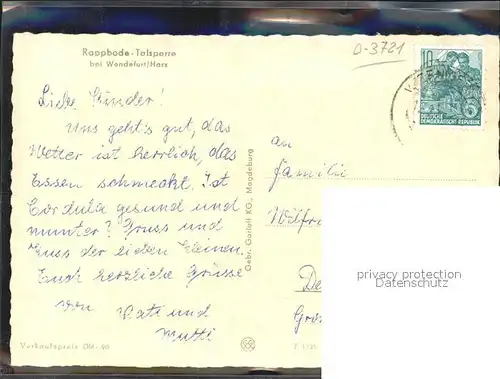 Rappbode-Talsperre
bei Wendefurt/Harz
D-3721
10
DEUTSCHE
DEMOKRATISCHE REPUBLIK
Liebe Kinder!
Uns geht's gut, das
Wetter ist herrlich, das
Essen schmeckt. Ist
Cordula gesund und
munter? Gruss und
Kuss der lieben Kleinen.
Euch herzliche Grüsse
von Vati und
Mutti
Gebr. Garloff KG., Magdeburg
an
Familie
Wilfri
privacy protection
Datenschutz
Verkaufspreis DM -,20